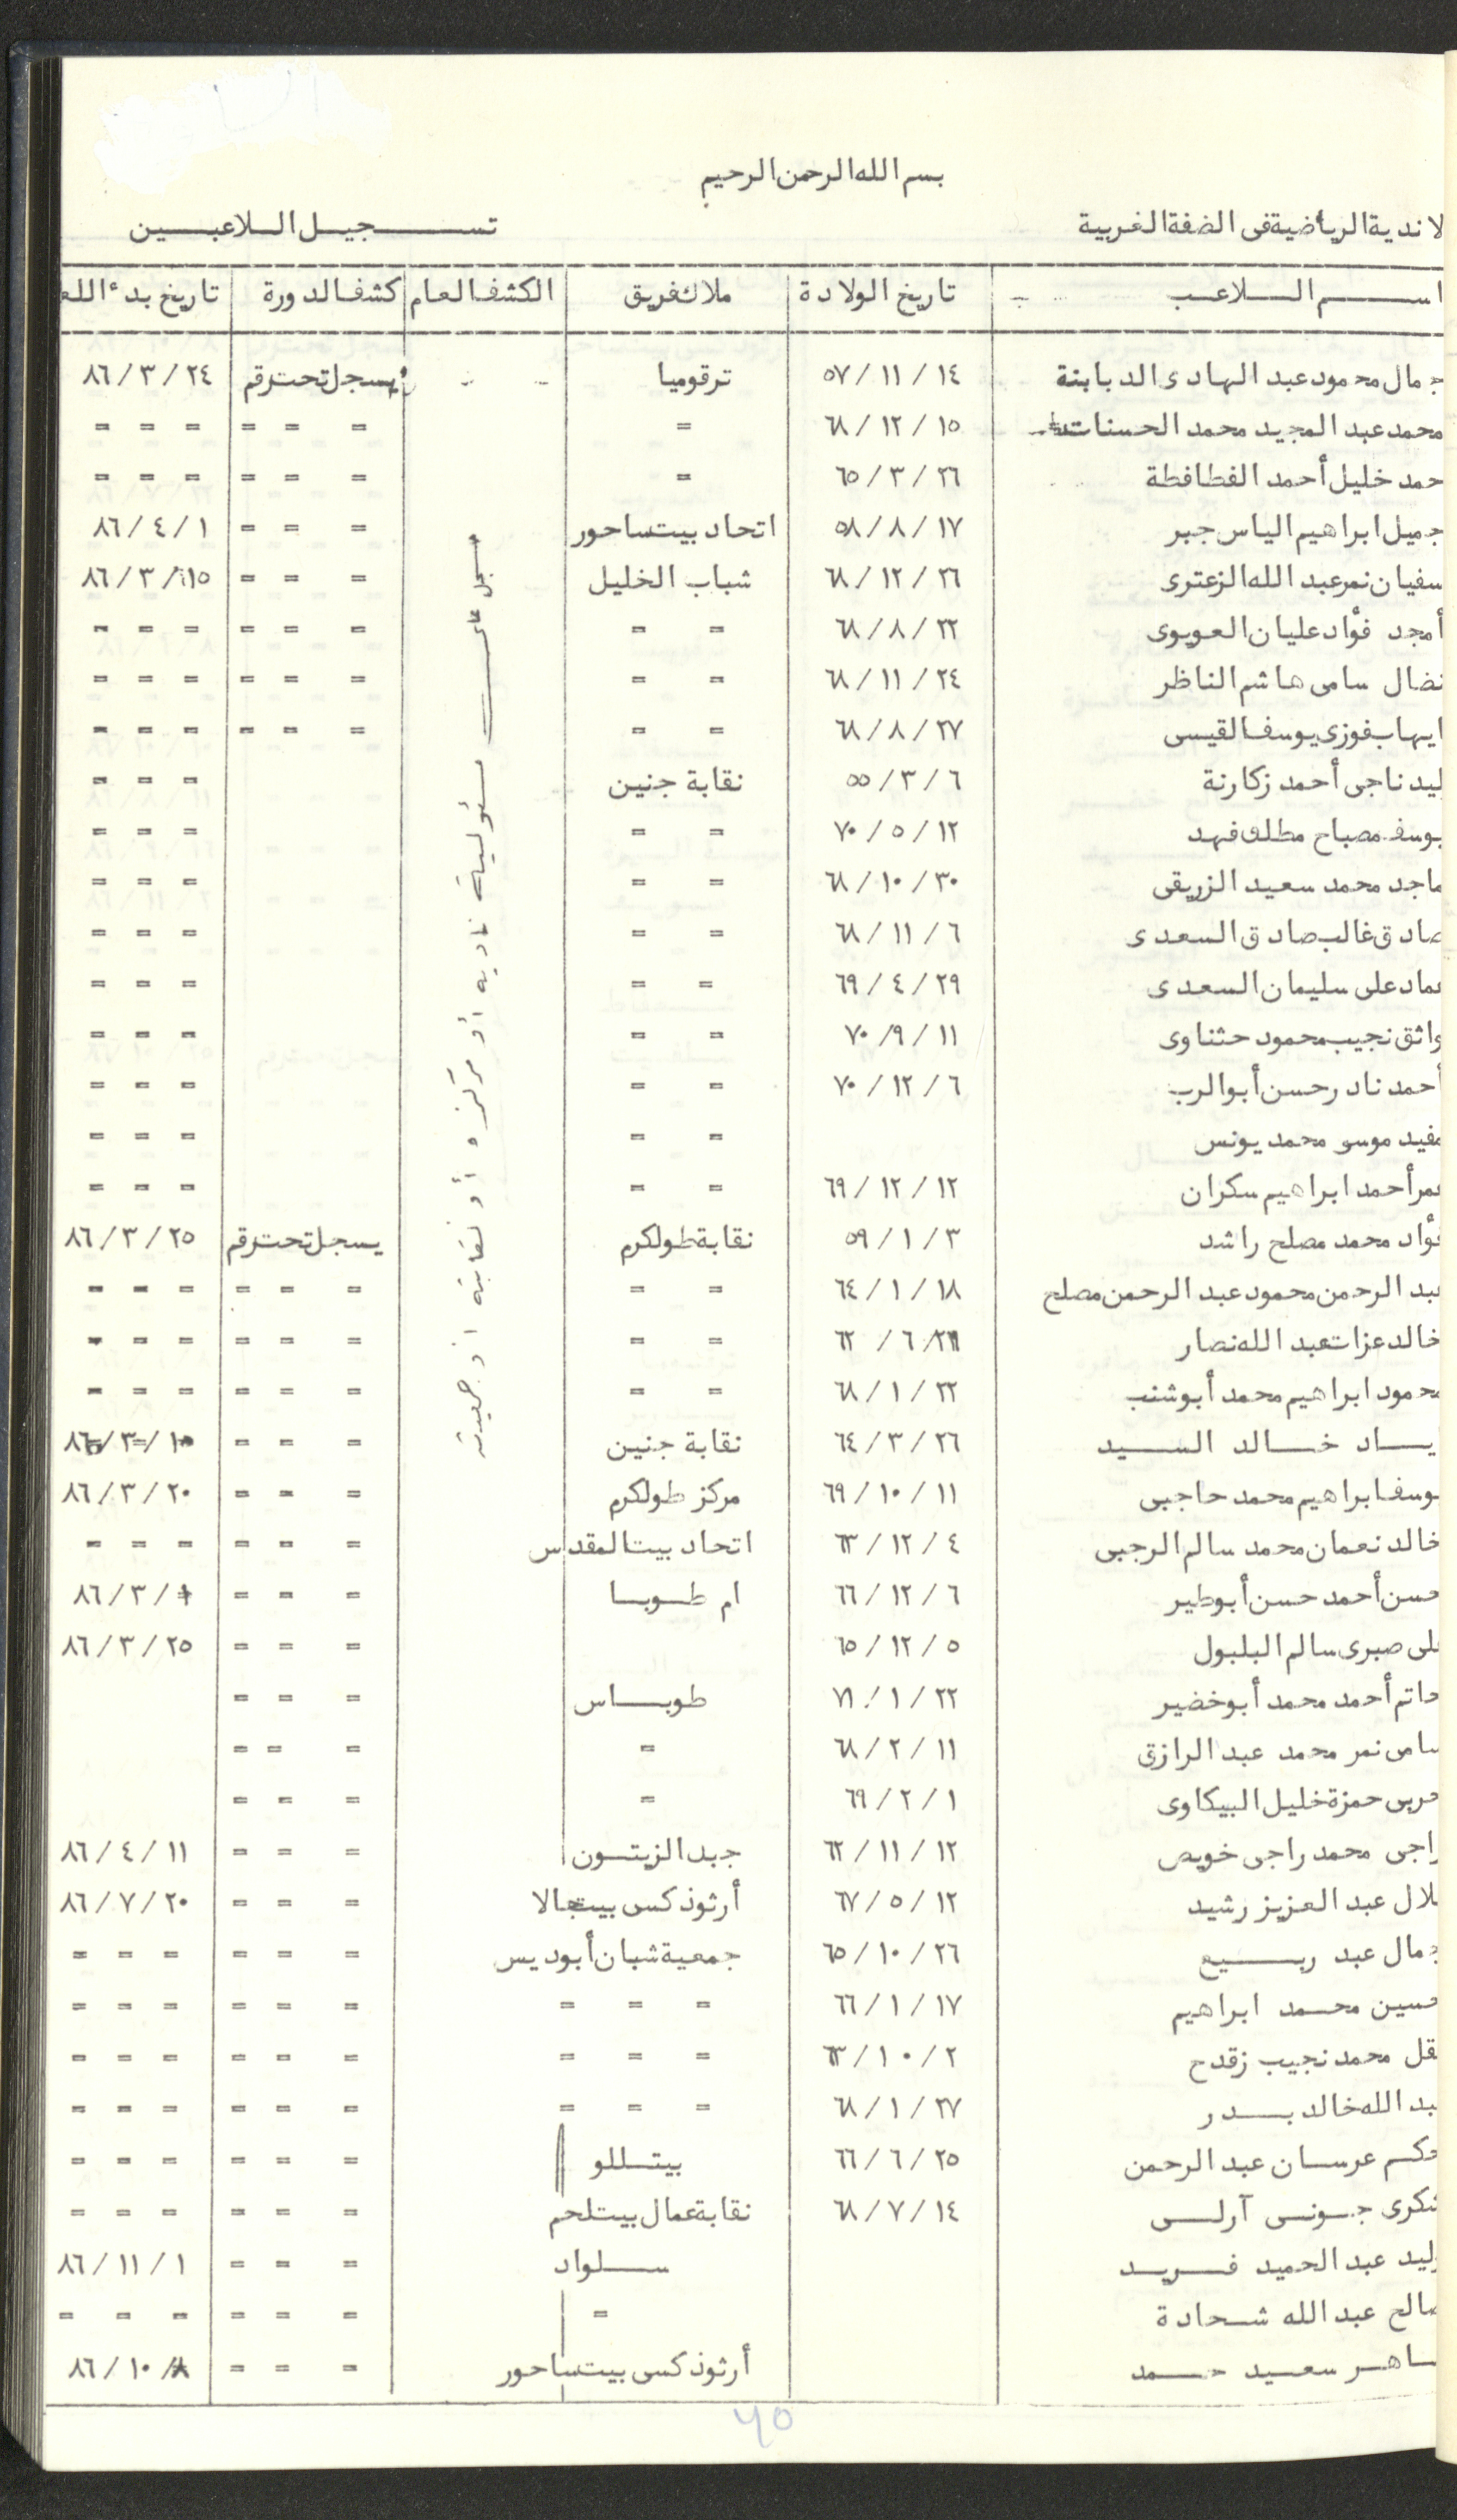 بسم الله الرحمن الرحيم
لاندية الرياضية فى الضفة الغربية تســـجيل الـلاعبـــين
اســـم الــلاعـب تاريخ الولادة ملاك فريق الكشف العام كشف الدورة تاريخ بدء اللع
جمال محمود عبد الهادى الدبابنة ١٤ / ١١ / ٥٧ ترقوميا يسجل تحت رقم ٢٤ / ٣ / ٨٦
محمد عبد المجيد محمد الحسنات ١٥ / ١٢ / ٦٨ = = = = = = =
حمد خليل أحمد الفطافطة ٢٦ / ٣ / ٦٥ = = = = = = =
جميل ابراهيم الياس جبر ١٧ / ٨ / ٥٨ اتحاد بيت ساحور = = = ١ / ٤ / ٨٦
سفيان نمر عبد الله الزعترى ٢٦ / ١٢ / ٦٨ شباب الخليل = = = ١٥ / ٣ / ٨٦
أمجد فؤاد عليان العويوى ٢٢ / ٨ / ٦٨ = = = = = = = =
نضال سامى هاشم الناظر ٢٤ / ١١ / ٦٨ = = = = = = = =
ايهاب فوزى يوسف القيسى ٢٧ / ٨ / ٦٨ = = = = = = = =
ليد ناجى أحمد زكارنة ٦ / ٣ / ٥٥ نقابة جنين = = =
يوسف مصباح مطلق فهد ١٢ / ٥ / ٧٠ = = = = =
ماجد محمد سعيد الزريقى ٣٠ / ١٠ / ٦٨ = = = = =
صادق غالب صادق السعدى ٦ / ١١ / ٦٨ = = = = =
عماد على سليمان السعدى ٢٩ / ٤ / ٦٩ = = = = =
واثق نجيب محمود حثناوى ١١ / ٩ / ٧٠ = = = = =
أحمد نادر حسن أبو الرب ٦ / ١٢ / ٧٠ = = = = =
مفيد موسى محمد يونس = = = = =
عمر أحمد ابراهيم سكران ١٢ / ١٢ / ٦٩ = = = = =
فؤاد محمد مصلح راشد ٣ / ١ / ٥٩ نقابة طولكرم يسجل تحت رقم ٢٥ / ٣ / ٨٦
عبد الرحمن محمود عبد الرحمن مصلح ١٨ / ١ / ٦٤ = = = = = = = =
خالد عزات عبد الله نصار / ٦ / ٦٢ = = = = = = = =
محمود ابراهيم محمد أبو شنب ٢٢ / ١ / ٦٨ = = = = = = = =
يــاد خــالد الســيد ٢٦ / ٣ / ٦٤ نقابة جنين = = = / ٣ / ٨٦
وسف ابراهيم محمد حاجبى ١١ / ١٠ / ٦٩ مركز طولكرم = = = ٢٠ / ٣ / ٨٦
خالد نعمان محمد سالم الرجبى ٤ / ١٢ / ٦٣ اتحاد بيت المقدس = = = = = =
حسن أحمد حسن أبو طير ٦ / ١٢ / ٦٦ ام طــوبــا = = = ١ / ٣ / ٨٦
على صبرى سالم البلبول ٥ / ١٢ / ٦٥ = = = ٢٥ / ٣ / ٨٦
حاتم أحمد محمد أبو خضير ٢٢ / ١ / ٧١ طوبــاس = = =
سامى نمر محمد عبد الرازق ١١ / ٢ / ٦٨ = = = =
حربى حمزة خليل البيكاوى ١ / ٢ / ٦٩ = = = =
راجى محمد راجى خويص ١٢ / ١١ / ٦٢ جبد الزيتــون = = = ١١ / ٤ / ٨٦
بلال عبد العزيز رشيد ١٢ / ٥ / ٦٧ أرثوذكسى بيت جالا = = = ٢٠ / ٧ / ٨٦
جمال عبد ربــيع ٢٦ / ١٠ / ٦٥ جمعية شبان أبو ديس = = = = = =
حسين محـمد ابراهيم ١٧ / ١ / ٦٦ = = = = = = = = =
قل محمد نجيب زقدح ٢ / ١٠ / ٦٣ = = = = = = = = =
عبد الله خالد بــدر ٢٧ / ١ / ٦٨ = = = = = = = = =
حكـم عرسـان عبد الرحمن ٢٥ / ٦ / ٦٦ بيتــللو = = = = = =
شكرى جـونـس آرلــس ١٤ / ٧ / ٦٨ نقابة عمال بيت لحم = = = = = =
وليد عبد الحميد فــريــد ســلواد = = = ١ / ١١ / ٨٦
صالح عبد الله شــحادة = = = = = = =
ساهــر سعـيد حــمد أرثوذكسى بيت ساحور = = = ٨ / ١٠ / ٨٦
سجل على مسئولية ناديه أو مركزه أو نقابته أو جمعيته
٦٥